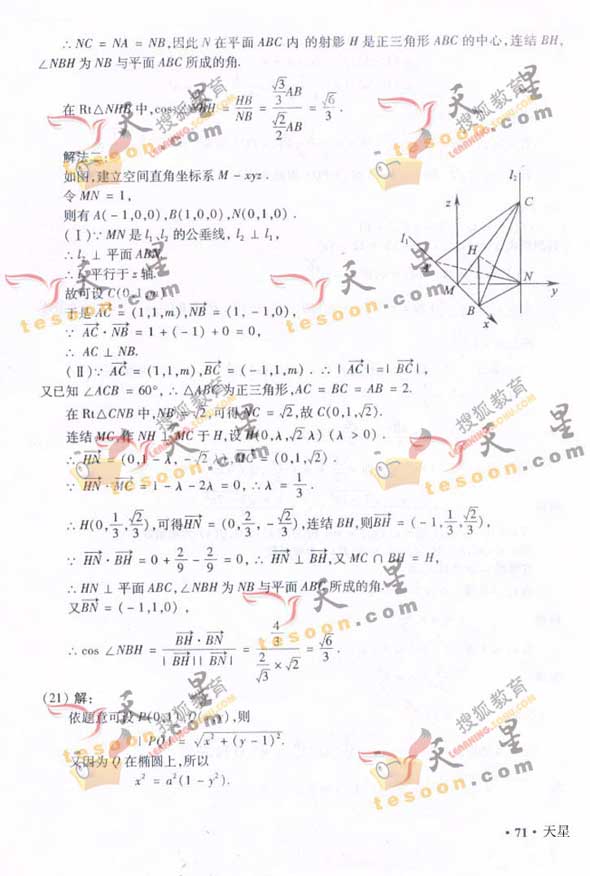 ∴ NC = NA = NB,因此 N 在平面 ABC 内的射影 H 是正三角形 ABC 的中心,连结 BH,
∠NBH 为 NB 与平面 ABC 所成的角.
在 Rt△NHB 中,cos∠NBH = HB/NB = (√3/3 AB)/(√2/2 AB) = √6/3 .
解法二:
如图,建立空间直角坐标系 M - xyz .
令 MN = 1,
则有 A( - 1,0,0),B(1,0,0),N(0,1,0) .
(Ⅰ)∵ MN 是 l₁、l₂ 的公垂线, l₂ ⊥ l₁,
∴ l₂ ⊥ 平面 ABN.
∴ l₂ 平行于 z 轴.
故可设 C(0,1,m).
于是 AC→ = (1,1,m),NB→ = (1, - 1,0),
∵ AC→ · NB→ = 1 + ( - 1) + 0 = 0,
∴ AC ⊥ NB.
(Ⅱ)∵ AC→ = (1,1,m),BC→ = ( - 1,1,m) . ∴ | AC→ | = | BC→ |,
又已知 ∠ACB = 60°, ∴ △ABC 为正三角形,AC = BC = AB = 2.
在 Rt△CNB 中,NB = √2,可得 NC = √2,故 C(0,1,√2).
连结 MC,作 NH ⊥ MC 于 H,设 H(0,λ,√2 λ) (λ > 0) .
∴ HN→ = (0,1 - λ, - √2 λ),MC→ = (0,1,√2) .
∵ HN→ · MC→ = 1 - λ - 2λ = 0, ∴ λ = 1/3 .
∴ H(0,1/3,√2/3),可得 HN→ = (0,2/3, - √2/3),连结 BH,则 BH→ = ( - 1,1/3,√2/3),
∵ HN→ · BH→ = 0 + 2/9 - 2/9 = 0, ∴ HN→ ⊥ BH→,又 MC ∩ BH = H,
∴ HN ⊥ 平面 ABC,∠NBH 为 NB 与平面 ABC 所成的角.
又 BN→ = ( - 1,1,0) ,
∴ cos ∠NBH = (BH→ · BN→)/(| BH→ | | BN→ |) = (4/3)/(2/√3 × √2) = √6/3 .
(21) 解:
依题意可设 P(0,1),Q(x,y),则
| PQ | = √(x² + (y - 1)²).
又因为 Q 在椭圆上,所以
x² = a²(1 - y²).
l₂
C
z
l₁
A
H
M
N
y
B
x
搜狐教育
LEARNING.SOHU.COM
天星
tesoon.com
· 71 · 天星